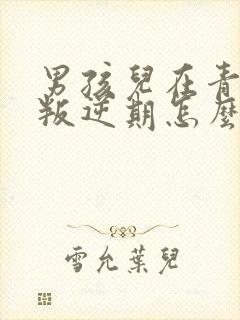 男孩兒在青
叛逆期怎麼
雪允葉兒